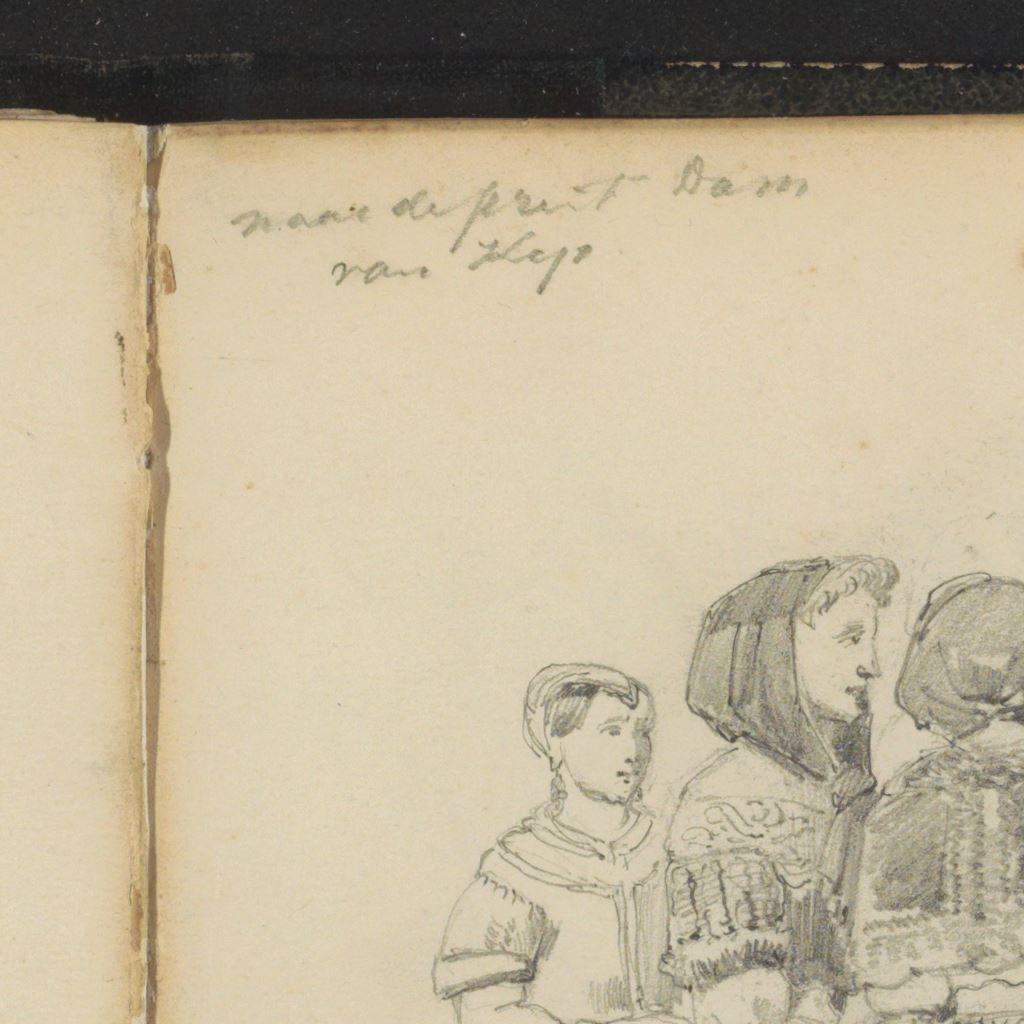 naar de prent Dam
van